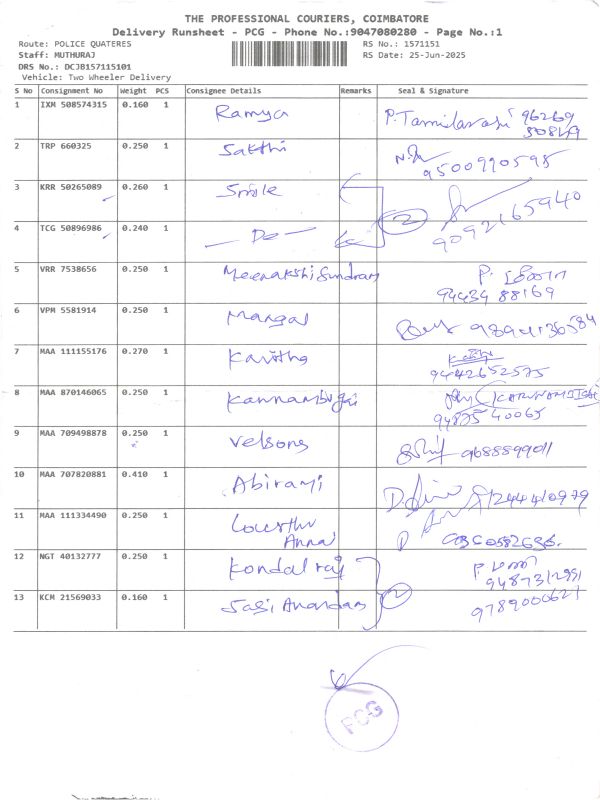 THE PROFESSIONAL COURIERS, COIMBATORE
Delivery Runsheet - PCG - Phone No.:9047080280 - Page No.:1
Route: POLICE QUATERES RS No.: 1571151
Staff: MUTHURAJ RS Date: 25-Jun-2025
DRS No.: DCJB157115101
Vehicle: Two Wheeler Delivery
S No Consignment No Weight PCS Consignee Details Remarks Seal & Signature
1 IXM 508574315 0.160 1 Ramya P. Tamilarasi 96269
50849
2 TRP 660325 0.250 1 Sakthi
9500990595
3 KRR 50265089 0.260 1 Smile
4 TCG 50896986 0.240 1 — Do — 2 9092165940
5 VRR 7538656 0.250 1 Meenakshi Sundram P.
94434 88169
6 VPM 5581914 0.250 1 Mangal
7 MAA 111155176 0.270 1 Kavitha
9442652575
8 MAA 870146065 0.250 1 Kannambigai
94875 40065
9 MAA 709498878 0.250 1 Velsons 9688899011
10 MAA 707820881 0.410 1 Abirami
11 MAA 111334490 0.250 1
Annai
12 NGT 40132777 0.250 1 Kondal raj P.
9487312991
13 KCM 21569033 0.160 1 Sasi Anandan 2 9789000621
PCG